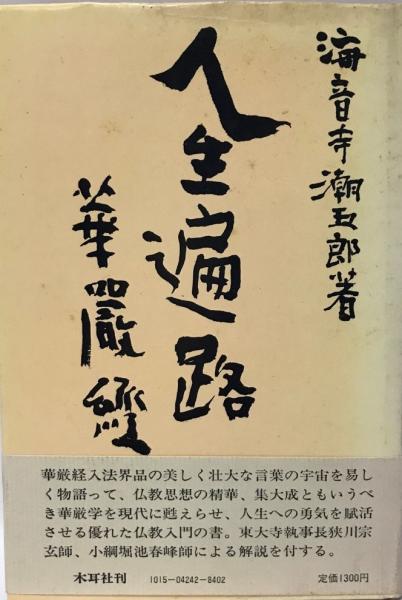 海音寺潮五郎著
人生遍路
華嚴經
華厳経入法界品の美しく壮大な言葉の宇宙を易し
く物語って、仏教思想の精華、集大成ともいうべ
き華厳学を現代に甦えらせ、人生への勇気を賦活
させる優れた仏教入門の書。東大寺執事長狭川宗
玄師、小綱堀池春峰師による解説を付する。
木耳社刊 1015-04242-8402 定価1300円